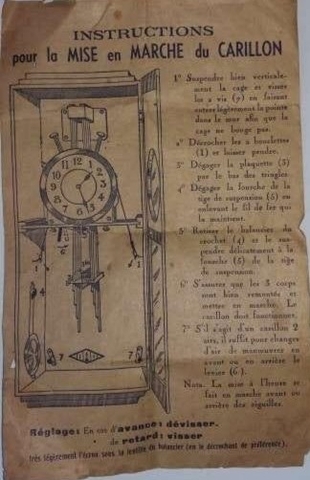 INSTRUCTIONS
pour la MISE en MARCHE du CARILLON
1° Suspendre bien verticale-
ment la cage et visser
la vis (7) en faisant
entrer légèrement la pointe
dans le mur afin que la
cage ne bouge pas.
2° Décrocher les 2 bouclettes
(1) et laisser pendre.
3° Dégager la plaquette (3)
par le bas des tringles.
4° Dégager la fourche de la
tige de suspension (5) en
enlevant le fil de fer qui
la maintient.
5° Retirer le balancier du
crochet (4) et le sus-
pendre délicatement à la
fourche (5) de la tige
de suspension.
6° S'assurer que les 3 corps
sont bien remontés et
mettre en marche. Le
carillon doit fonctionner.
7° S'il s'agit d'un carillon 2
airs, il suffit pour changer
d'air de manœuvrer en
avant ou en arrière le
levier (6).
Nota. La mise à l'heure se
fait en marche avant ou
arrière des aiguilles.
1
1
7
7
ODO
Réglage: En cas d'avance: dévisser.
de retard: visser
très légèrement l'écrou sous la lentille du balancier (en le décrochant de préférence).